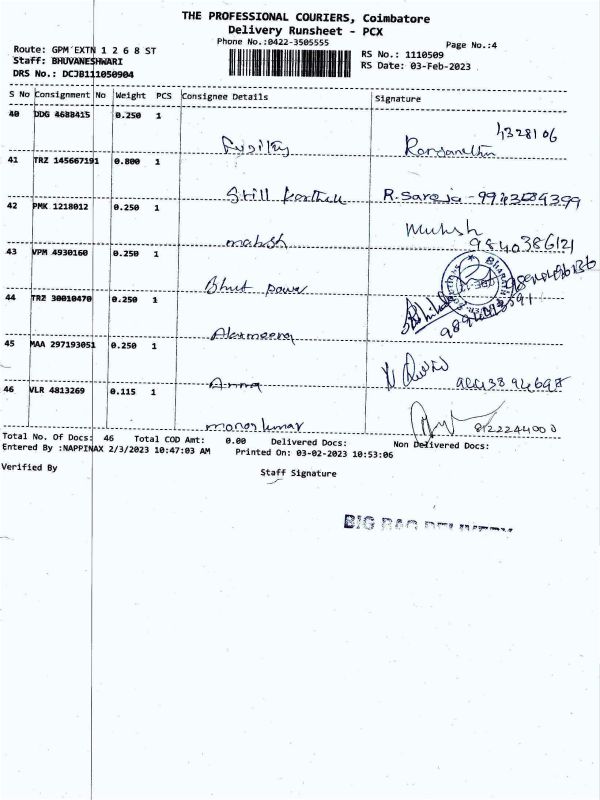 THE PROFESSIONAL COURIERS, Coimbatore
Delivery Runsheet - PCX
Phone No.:0422-3505555
Page No.:4
Route: GPM EXTN 1 2 6 8 ST
RS No.: 1110509
Staff: BHUVANESHWARI
RS Date: 03-Feb-2023
DRS No.: DCJB111050904
S No Consignment No Weight PCS Consignee Details Signature
40 DDG 4688415 0.250 1
4328106
41 TRZ 145667191 0.800 1
Still Karthik R. Saroja - 9943589399
42 PMK 1218012 0.250 1
Mukesh
mahesh 9840386121
43 VPM 4930160 0.250 1
Bhut power
44 TRZ 30010470 0.250 1
Alexmeena
45 MAA 297193051 0.250 1
Anna
46 VLR 4813269 0.115 1
manoj kumar 8122244000
Total No. Of Docs: 46 Total COD Amt: 0.00 Delivered Docs: Non Delivered Docs:
Entered By :NAPPINAX 2/3/2023 10:47:03 AM Printed On: 03-02-2023 10:53:06
Verified By
Staff Signature
BIG BAG DELIVERY